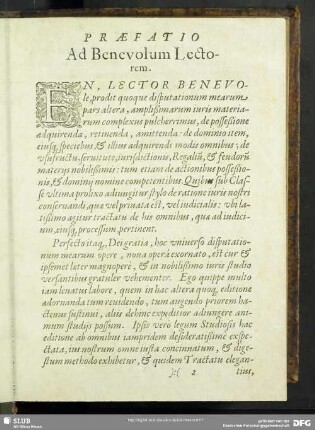 PRÆFATIO
Ad Benevolum Lecto-
rem.
EN, LECTOR BENEVO-
le, prodit quoque disputationum mearum
pars altera, amplissimarum iuris materia-
rum complexus pulcherrimus, de possessione
adquirenda, retinenda, amittenda: de dominio item,
eiusq́, speciebus & illius adquirendi modis omnibus, de
vsufructu, seruitute, iurisdictionis, Regaliũ, & feudorũ
materijs nobilissimis: tum etiam de actionibus possessio-
nis, & dominij nomine competentibus. Quibus sub Clas-
se vltima prolixo adiungitur stylo de ratione iuris nostri
conseruandi, qua vel priuata est, vel iudicialis: vbi la-
tissimo agitur tractatu de his omnibus, qua ad iudici-
um, eiusq́, processum pertinent.
Perfecto itaq, Dei gratia, hoc vniuerso disputatio-
num mearum opere, noua opera exornato, est cur &
ipsemet later magnopere, & in nobilissimo iuris studio
versantibus grauiter vehementer. Ego quippe multo
iam leuatus labore, quem in hac altera quoq, editione
adornanda tum reuidendo, tum augendo priorem ha-
ctenus sustinui, alijs debinc expeditior adiungere ani-
mum studijs possum. Ipsis vero legum Studiosis hac
editione ab omnibus iampridem desideratissime exspe-
ctata, ius nostrum omne iusta concinnatum, & dige-
stum methodo exhibetur, & quodem Tractatu elegan-
):( 2 tius,
SLUB
DFG